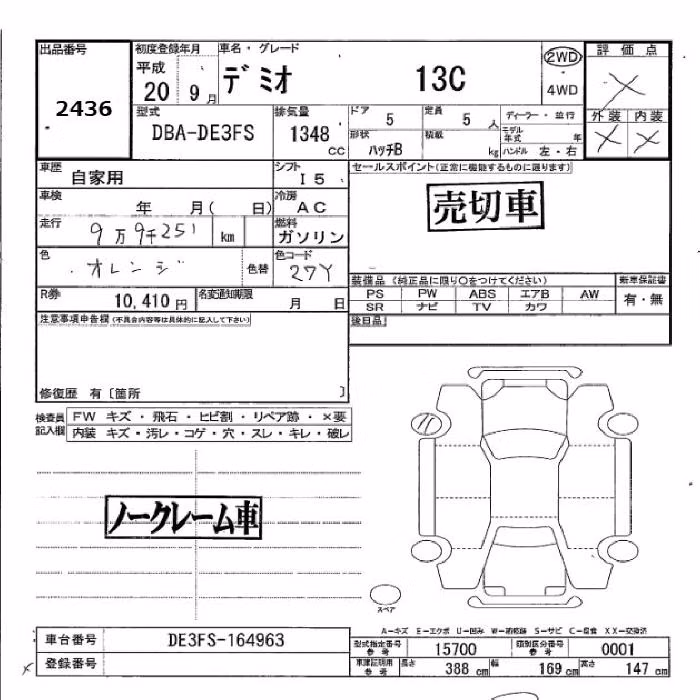 出品番号
2436
初度登録年月
平成
20 9月
車名・グレード
デミオ 13C
2WD
4WD
評価点
×
外装 内装
× ×
型式
DBA-DE3FS
排気量
1348
CC
ドア
5
定員
5 人
形状
ハッチB
積載
kg
ディーラー・並行
モデル年式 年
ハンドル 左・右
車歴
自家用
シフト
I5
車検
年 月( 日)
冷房
AC
走行
9万9千251 km
燃料
ガソリン
色
オレンジ
色替
色コード
27Y
R券
10,410円
名変通知期限
月 日
セールスポイント(正常に機能するものに限ります)
売切車
装備品 (純正品に限り○をつけてください)
新車保証書
PS PW ABS エアB AW
SR ナビ TV カワ
有・無
後日品
注意事項申告欄(不具合内容等は具体的に記入して下さい)
修復歴 有〔箇所 〕
検査員記入欄
FW キズ・飛石・ヒビ割・リペア跡・×要
内装 キズ・汚レ・コゲ・穴・スレ・キレ・破レ
ノークレーム車
スペア
A-キズ E-エクボ U-凹み W-補修跡 S-サビ C-腐食 XX-交換済
車台番号
DE3FS-164963
登録番号
型式指定番号参考
15700
類別区分番号参考
0001
車庫証明用参考
長さ
388 cm
幅
169 cm
高さ
147 cm